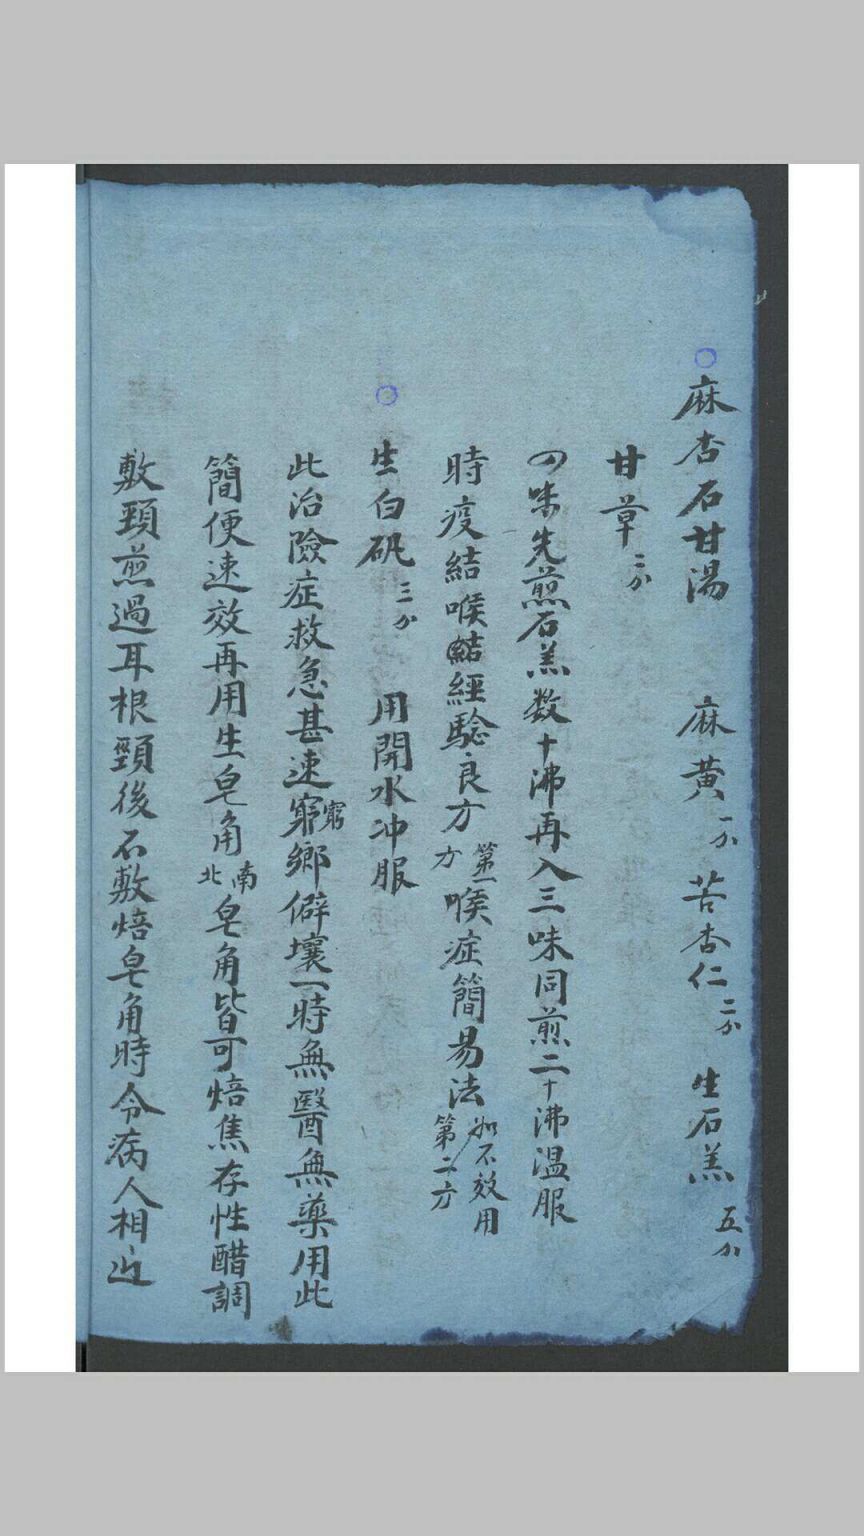 麻杏石甘湯 麻黄一分 苦杏仁二分 生石羔五分
甘草二分
四味先煎石羔数十沸再入三味同煎二十沸温服
時疫結喉結經驗良方第一方喉症簡易法如不效用第二方
生白矾三分 用開水冲服
此治險症救急甚速窮窮鄉僻壤一時無醫無藥用此
簡便速效再用生皂角南北皂角皆可焙焦存性醋調
敷頸煎過耳根頸後不敷焙皂角時令病人相近